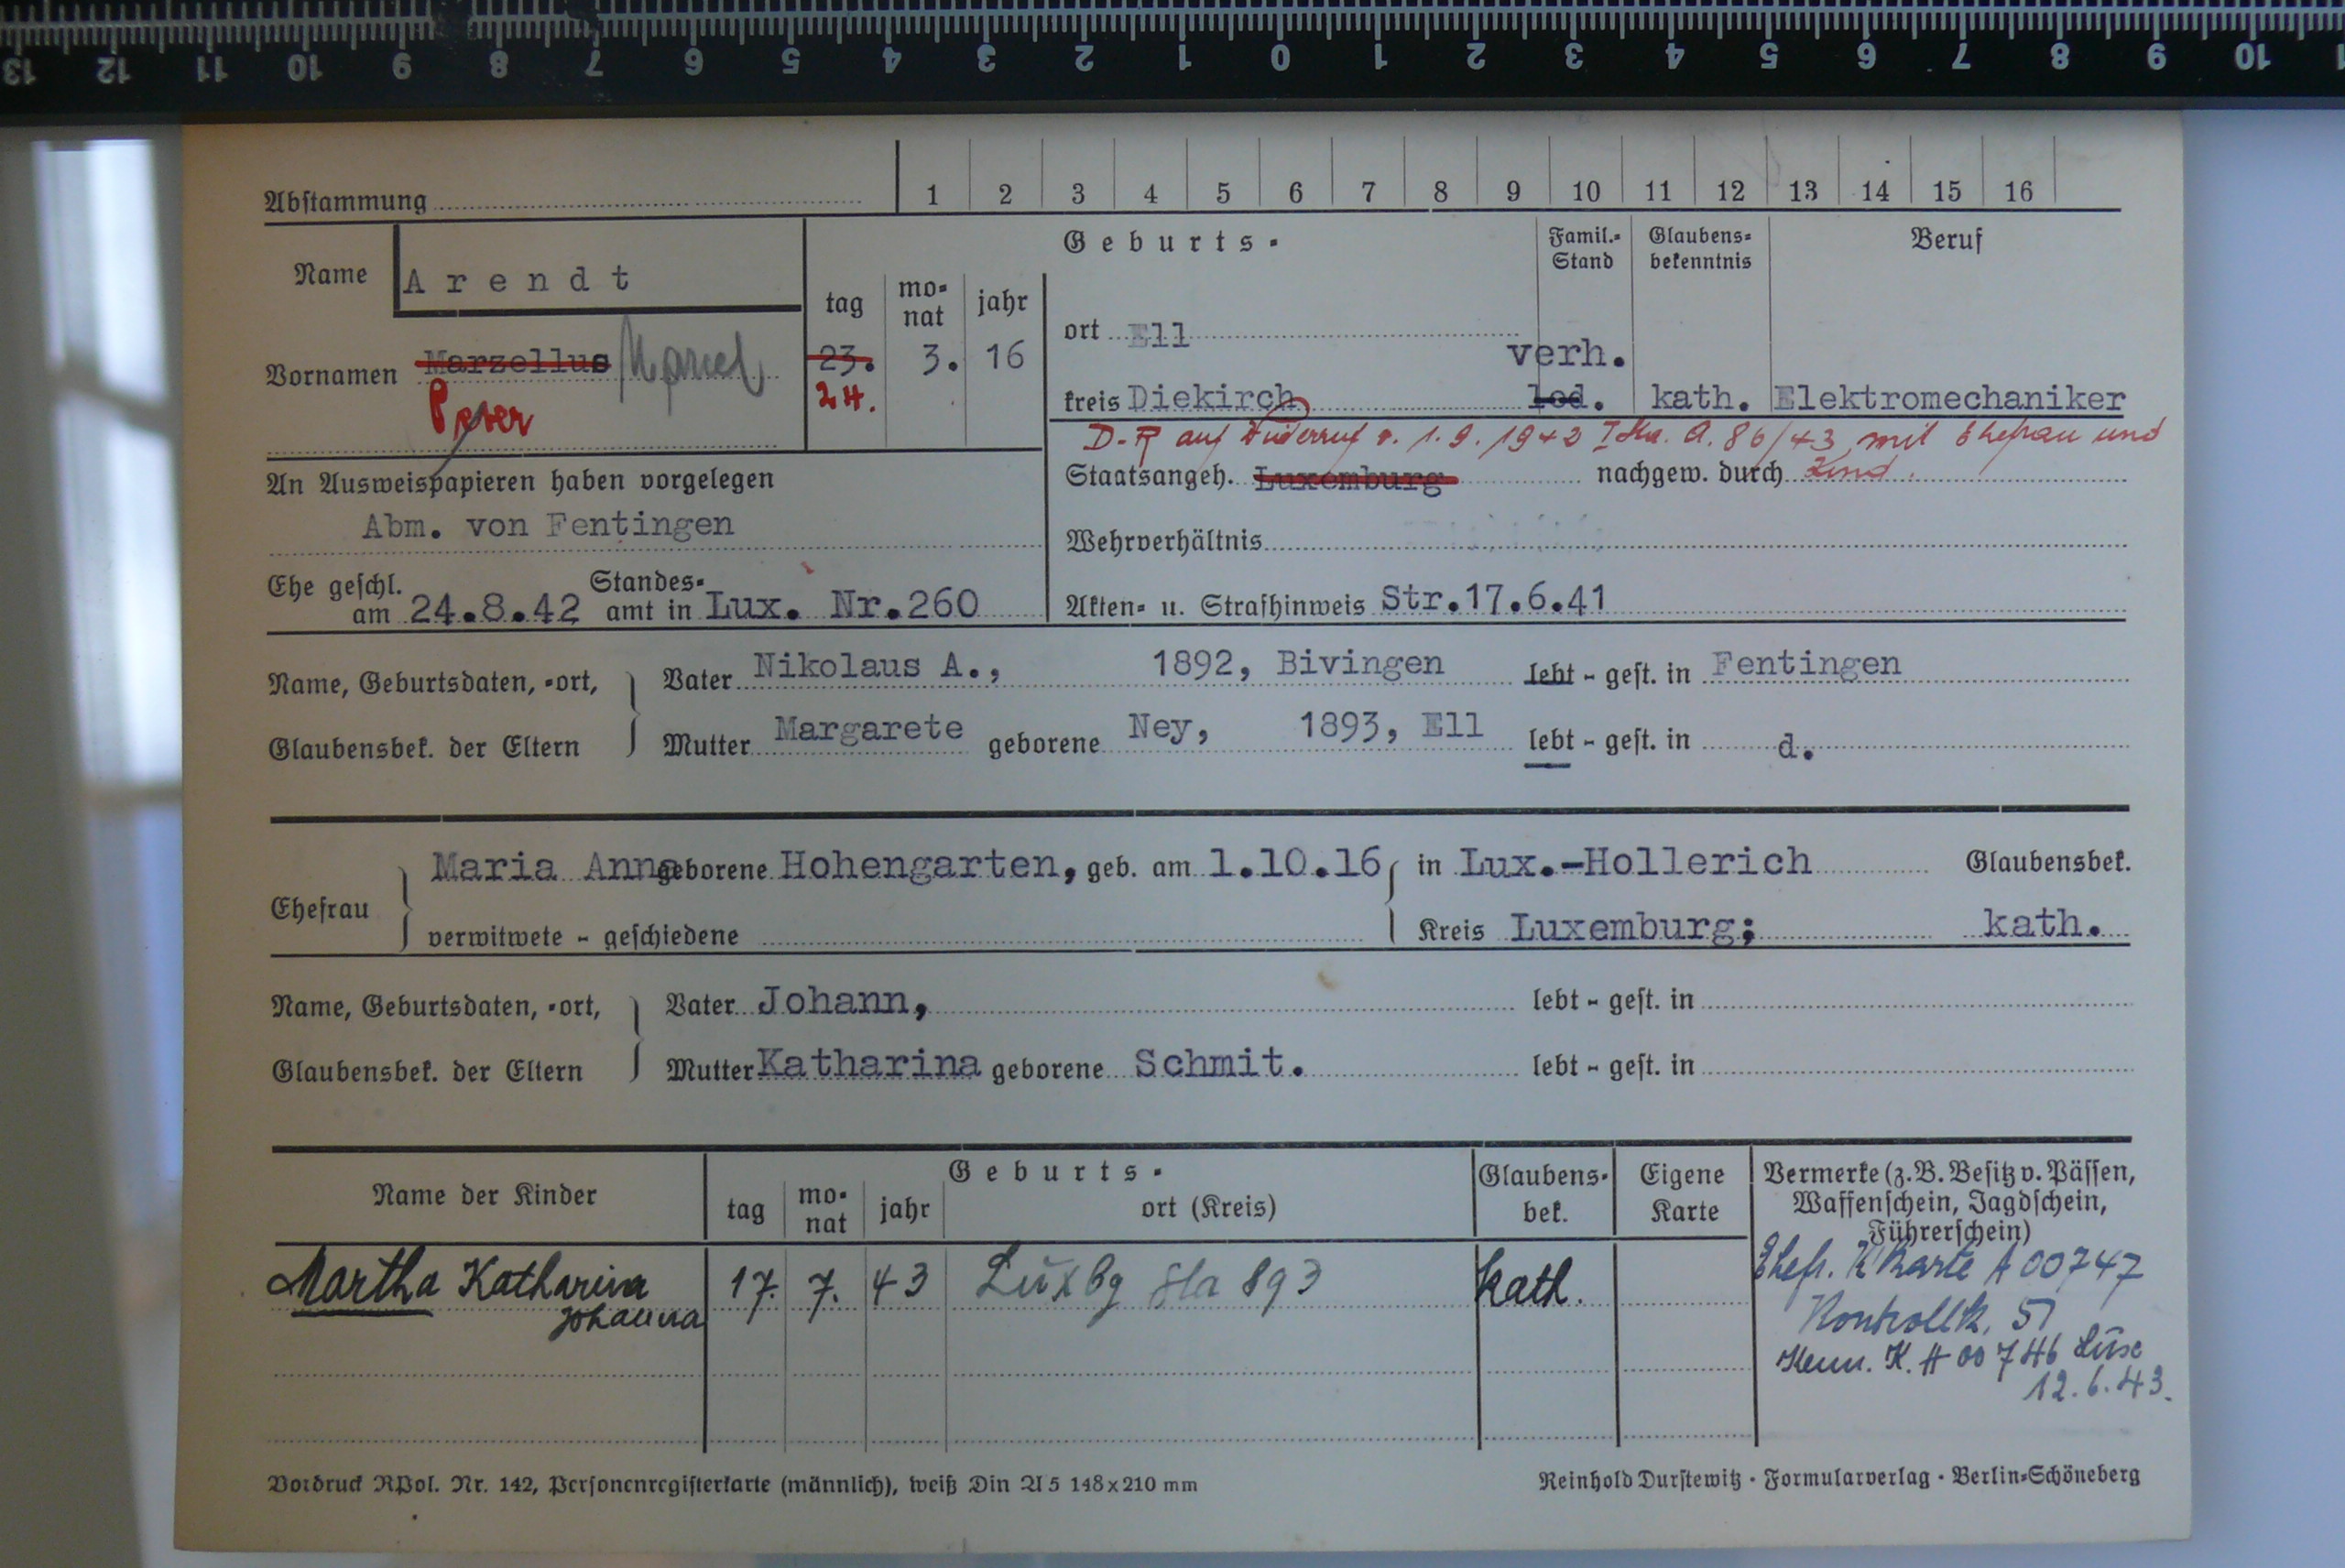 13 12 11 10 9 8 7 6 5 4 3 2 1 0 1 2 3 4 5 6 7 8 9 10
Abstammung 1 2 3 4 5 6 7 8 9 10 11 12 13 14 15 16
Name Arendt
Vornamen Marzellus Marcel
Peter
Geburts-
tag monat jahr
23. 3. 16
24.
ort Ell
kreis Diekirch
Famil.-Stand
verh.
led.
Glaubensbekenntnis
kath.
Beruf
Elektromechaniker
D-R auf Widerruf v. 1.9.1942 A. 86/43 mit Ehefrau und
Kind.
Staatsangeh. Luxemburg nachgew. durch
An Ausweispapieren haben vorgelegen
Abm. von Fentingen
Wehrverhältnis
Ehe geschl. am 24.8.42 Standesamt in Lux. Nr.260
Akten- u. Strafhinweis Str.17.6.41
Name, Geburtsdaten, -ort,
Glaubensbek. der Eltern
Vater Nikolaus A., 1892, Bivingen lebt - gest. in Fentingen
Mutter Margarete geborene Ney, 1893, Ell lebt - gest. in d.
Ehefrau
Maria Anna geborene Hohengarten, geb. am 1.10.16 in Lux.-Hollerich Glaubensbek.
verwitwete - geschiedene Kreis Luxemburg; kath.
Name, Geburtsdaten, -ort,
Glaubensbek. der Eltern
Vater Johann, lebt - gest. in
Mutter Katharina geborene Schmit. lebt - gest. in
Name der Kinder
Geburts-
tag monat jahr ort (Kreis)
Glaubensbek.
Eigene Karte
Vermerke (z.B. Besitz v. Pässen,
Waffenschein, Jagdschein,
Führerschein)
Martha Katharina
Johanna
17. 7. 43 Luxbg Sta 893 kath.
Ehefr. K Karte A 00747
Kontrollk. 51
Kenn. K. A 00746 Lux
12.6.43.
Vordruck RPol. Nr. 142, Personenregisterkarte (männlich), weiß Din A 5 148x210 mm
Reinhold Durstewitz · Formularverlag · Berlin-Schöneberg